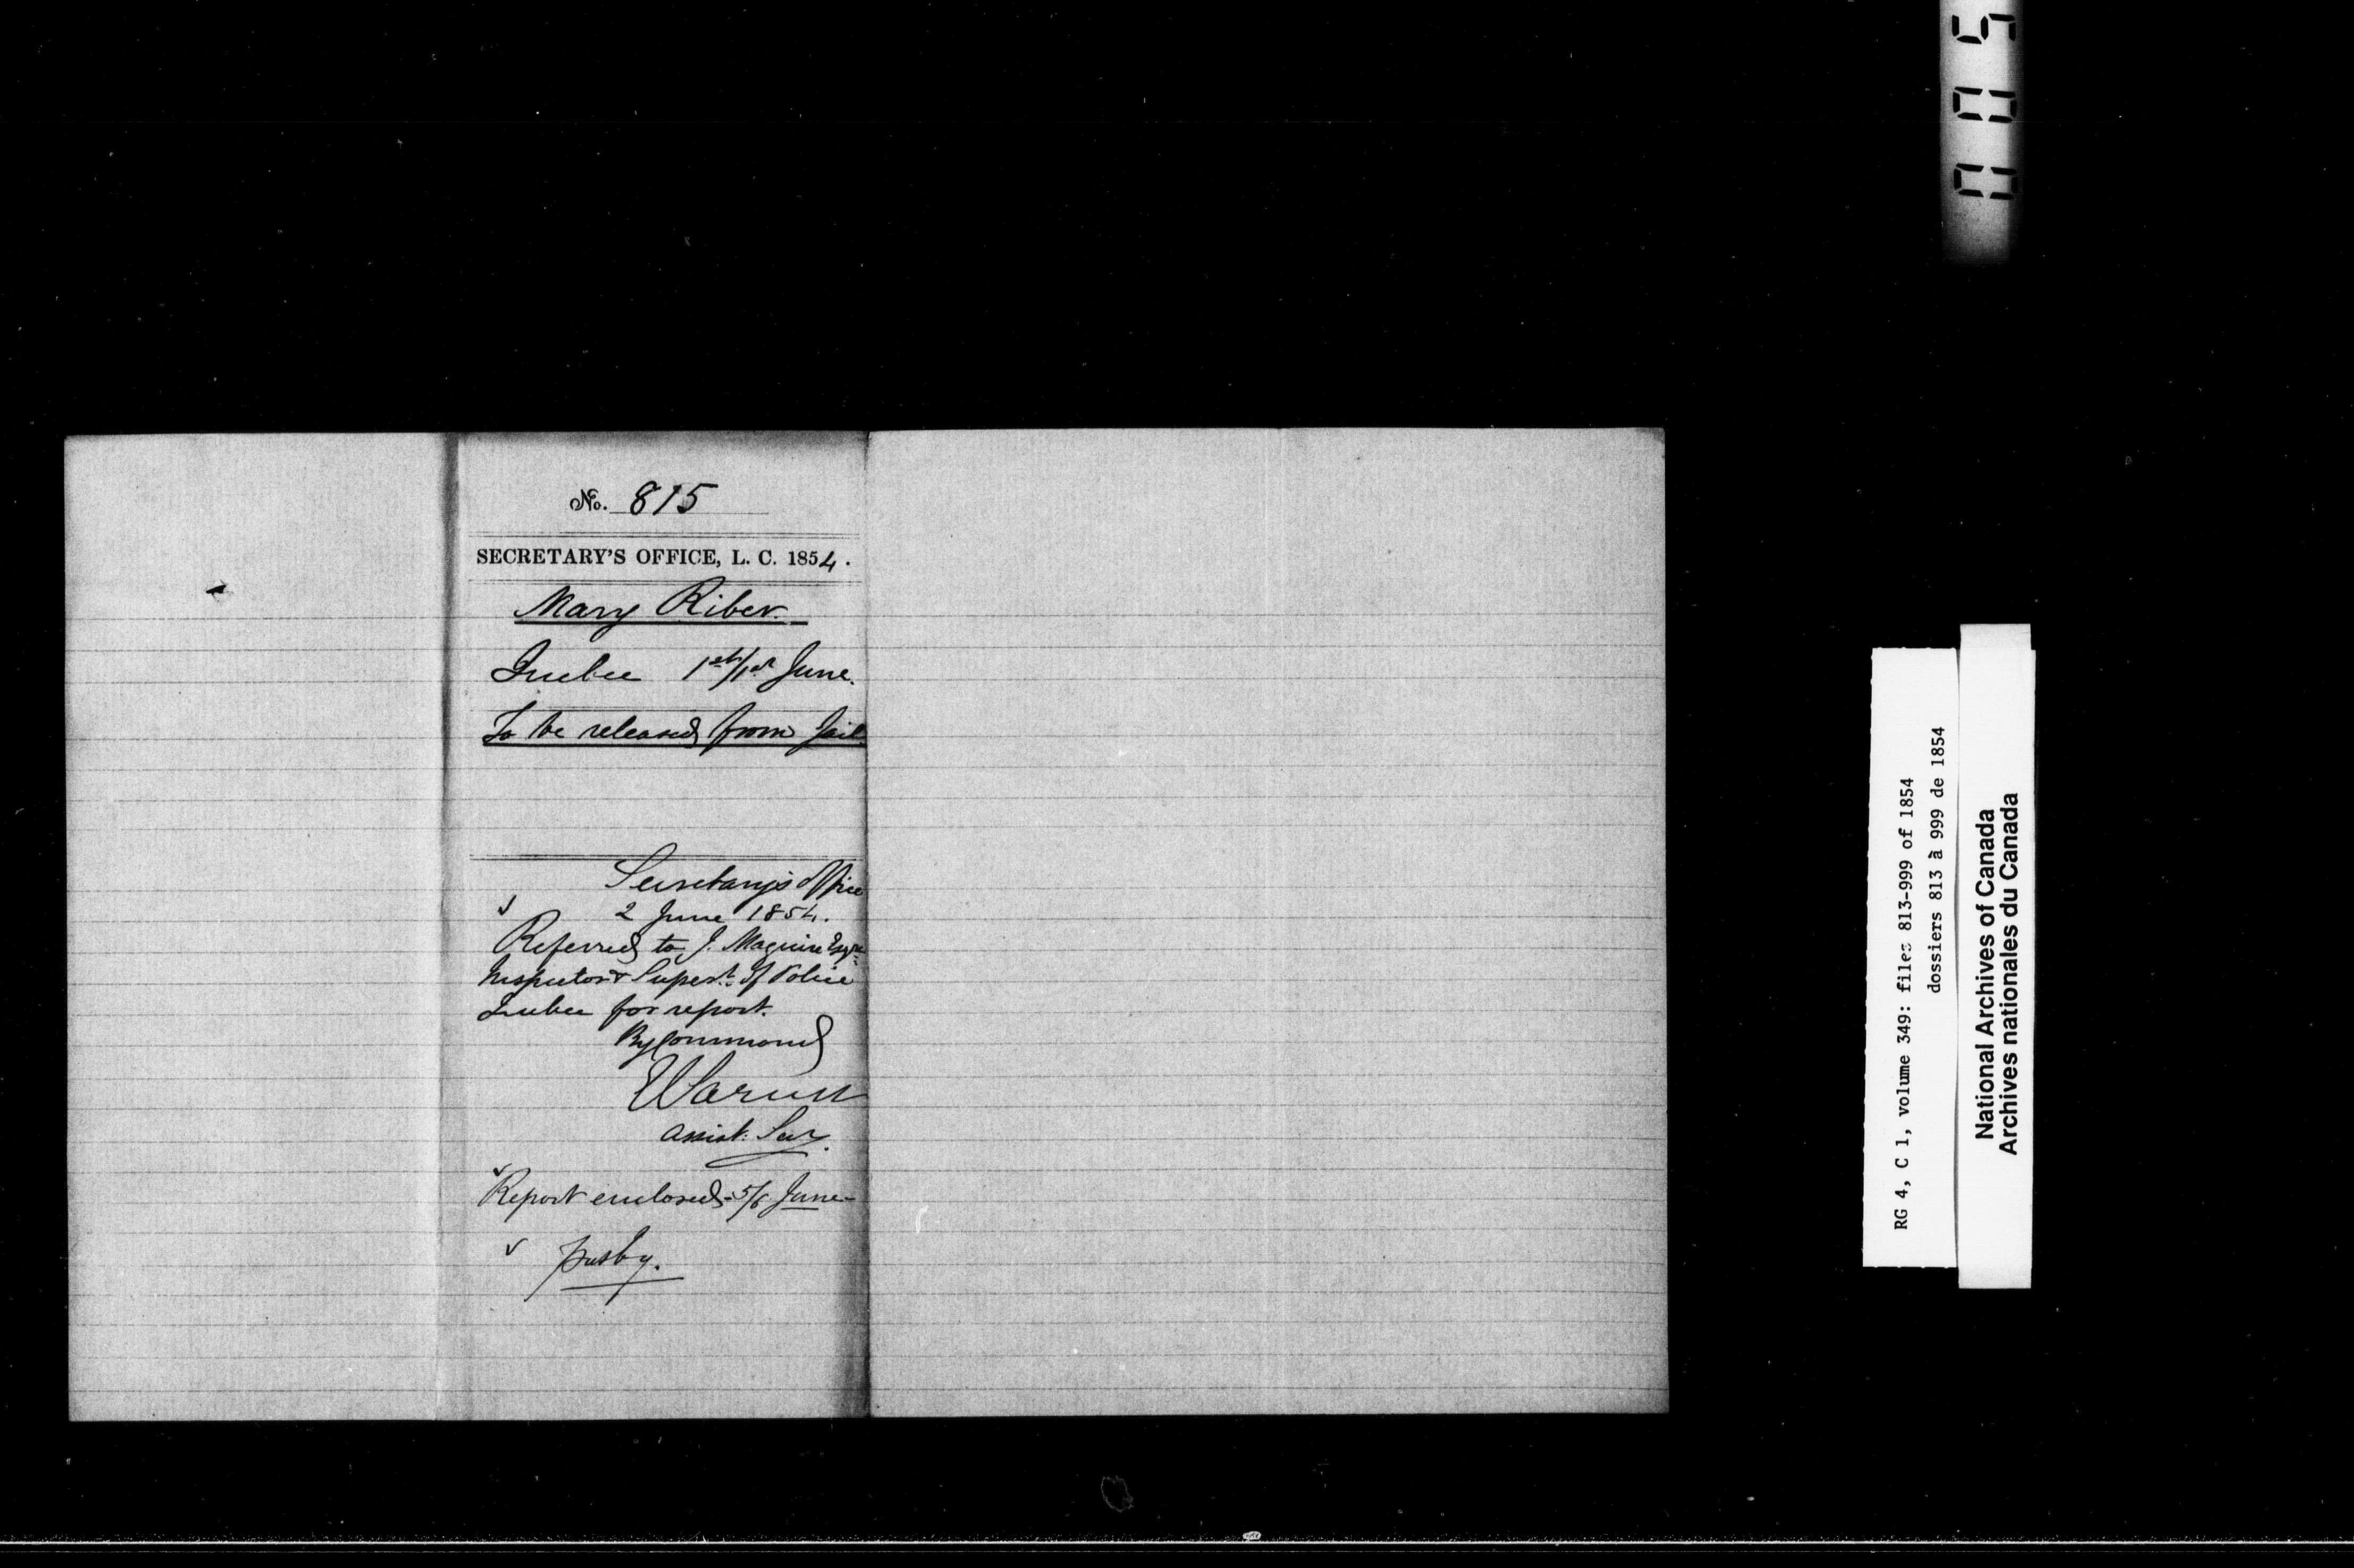 No. 815
SECRETARY'S OFFICE, L. C. 1854.
Mary Riber.
Quebec 1st/1st June.
To be released from Jail.
Secretary's Office
2 June 1854.
Referred to J. Maguire Esqre
Inspector & Supert. of Police
Quebec for report.
By Command
Assist. Secy.
Report enclosed - 5/6 June -
RG 4, C 1, volume 349: files 813-999 of 1854
dossiers 813 à 999 de 1854
National Archives of Canada
Archives nationales du Canada
005